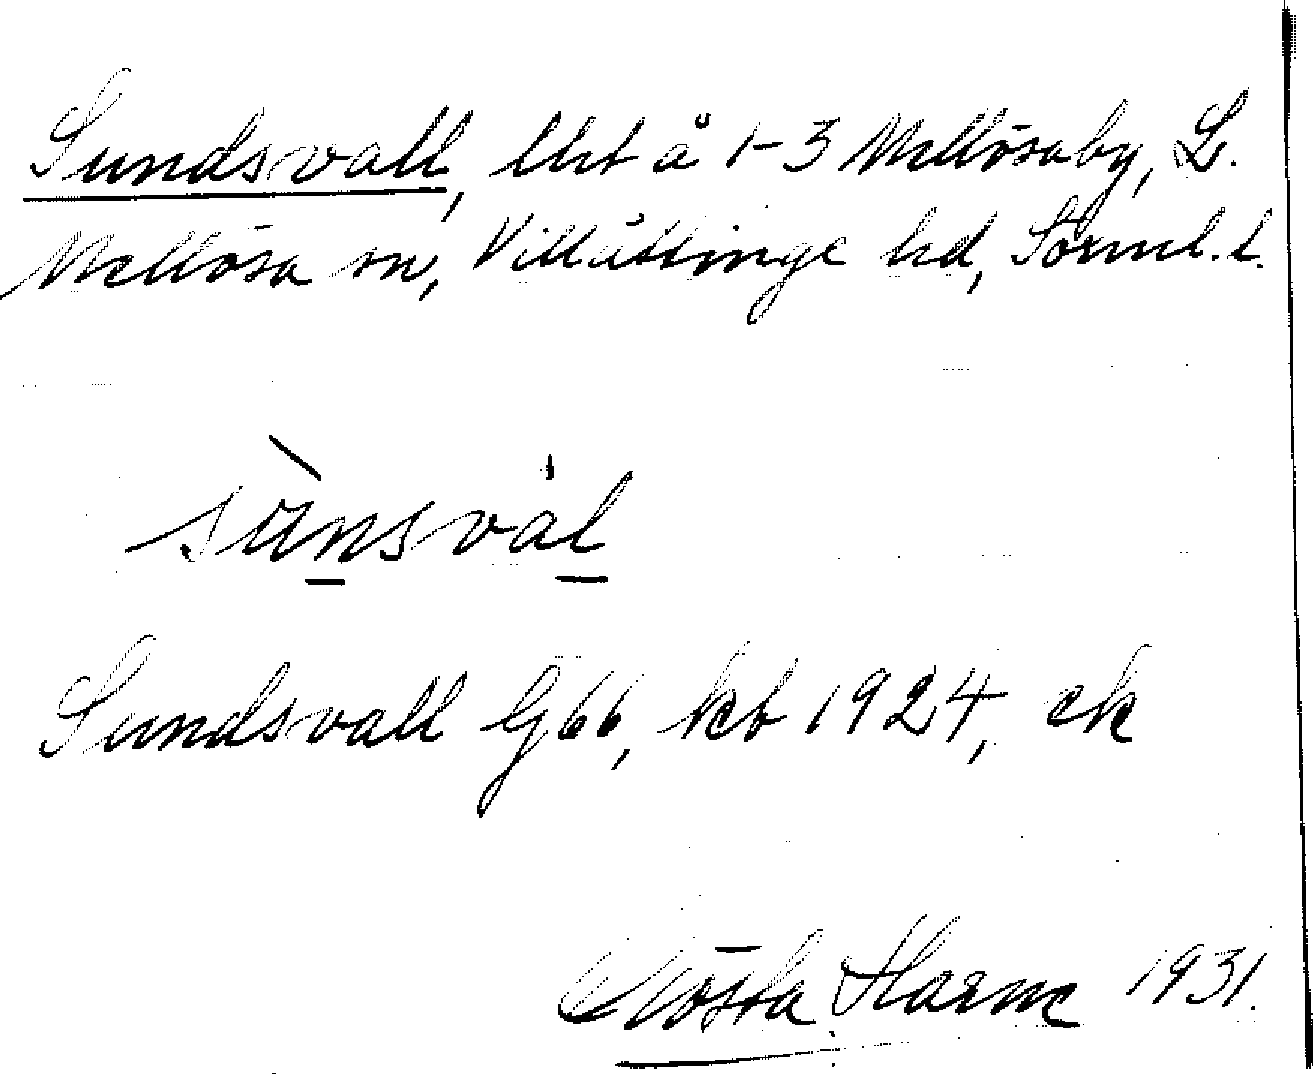 Sundsvall, lht å 1-3 Mellösaby, L.
Mellösa sn, Villåttinge hd, Sörml. l.
sùnsvàl
Sundsvall G66, kb 1924, ek
Gösta Harne 1931.